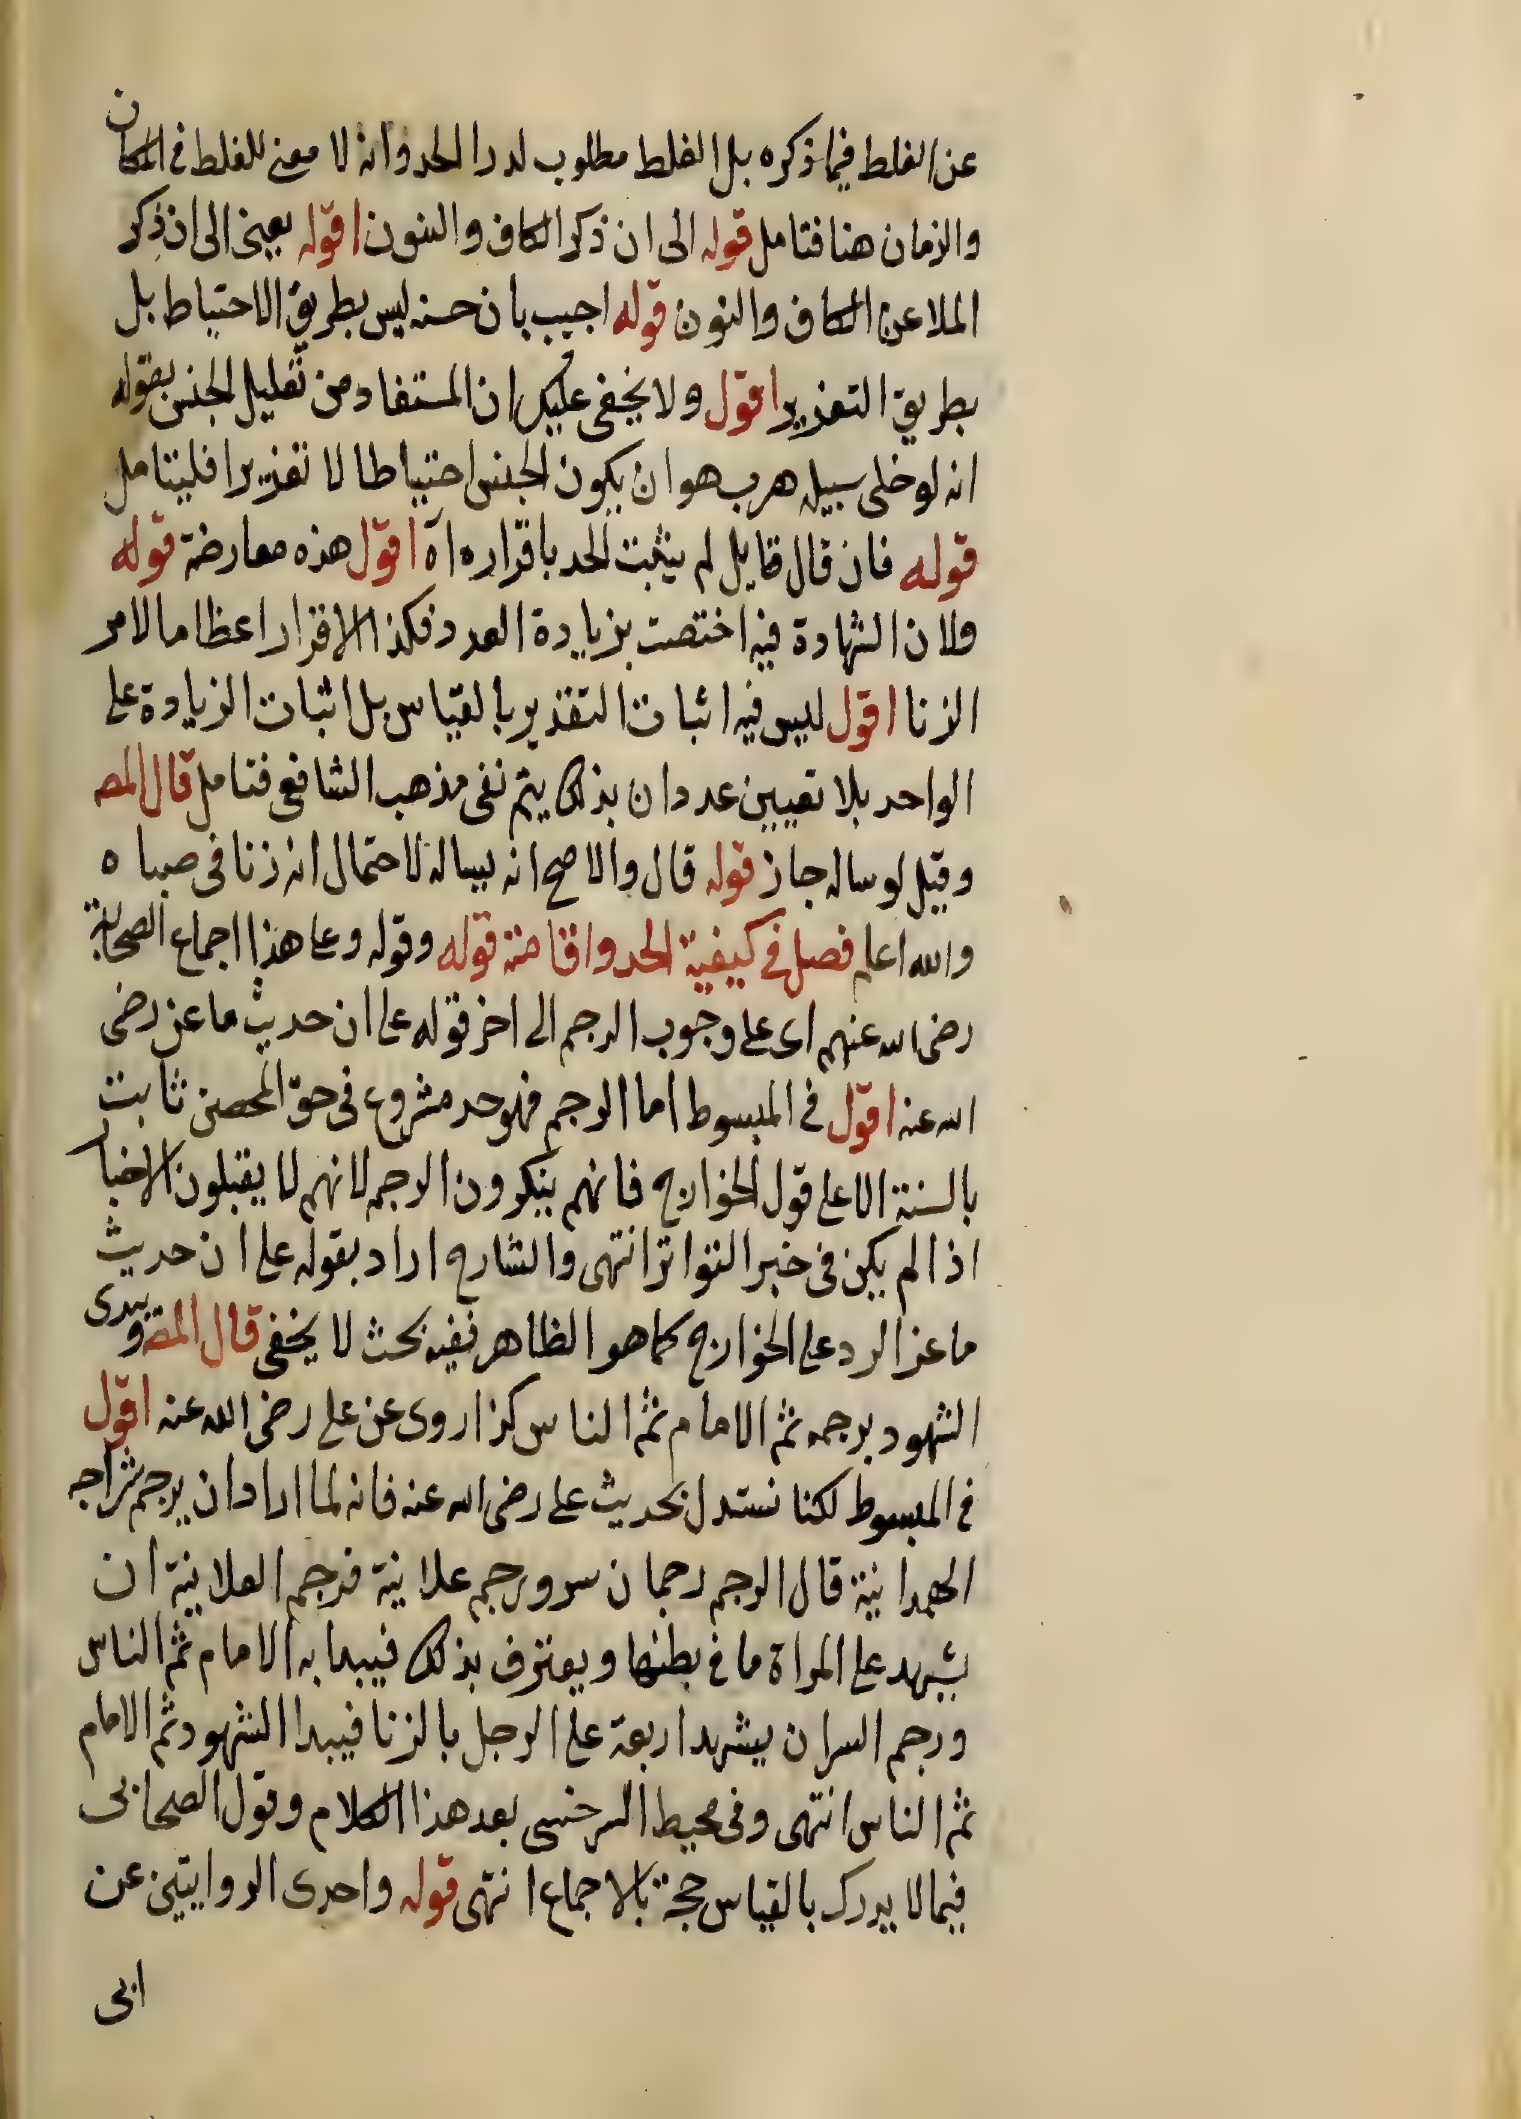 عن الغلط فيما ذكره بل الغلط مطلوب لدرا الحد وانه لا معنى للغلط في المكان
والزمان هنا فتامل قوله الى ان ذكر الكاف والنون اقول يعنى الى ان ذكر
الملاعن الكاف والنون قوله اجيب بان حسنه ليس بطريق الاحتياط بل
بطريق التعزير اقول ولا يخفى عليك ان المستفاد من تعليل الحبس بقوله
انه لو خلى سبيله هرب هو ان يكون الحبس احتياطا لا تعزيرا فليتامل
قوله فان قال قايل لم يثبت الحد باقراره اه اقول هذه معارضة قوله
ولان الشهادة فيه اختصت بزيادة العدد فكذا الاقرار اعظاما لامر
الزنا اقول ليس فيه اثبات التقدير بالقياس بل اثبات الزيادة على
الواحد بلا تعيين عدد ان بذلك يتم نفى مذهب الشافعى فتامل قال المص
وقيل لو ساله جاز قوله قال والاصح انه يساله لاحتمال انه زنا فى صباه
والله اعلم فصل في كيفية الحد واقامته قوله وقوله وعلى هذا اجماع الصحابة
رضى الله عنهم اى على وجوب الرجم الى اخر قوله على ان حديث ماعز رضى
الله عنه اقول في المبسوط اما الرجم فهو حد مشروع فى حق المحصن ثابت
بالسنة الا على قول الخوارج فانهم ينكرون الرجم لانهم لا يقبلون الاخبار
اذا لم يكن فى خبر التواتر انتهى والشارح اراد بقوله على ان حديث
ماعز الرد على الخوارج كما هو الظاهر ففيه بحث لا يخفى قال المص ويبدى
الشهود برجمه ثم الامام ثم الناس كذا روى عن على رضى الله عنه اقول
في المبسوط لكنا نستدل بحديث على رضى الله عنه فانه لما اراد ان يرجم شراحه
الهمدانية قال الرجم رجمان سر ورجم علانية فرجم العلانية ان
يشهد على المراة ما في بطنها ويعترف بذلك فيبدا به الامام ثم الناس
ورجم السر ان يشهد اربعة على الرجل بالزنا فيبدا الشهود ثم الامام
ثم الناس انتهى وفى محيط السرخسى بعد هذا الكلام وقول الصحابى
فيما لا يدرك بالقياس حجة بالاجماع انتهى قوله واحدى الروايتين عن
ابى